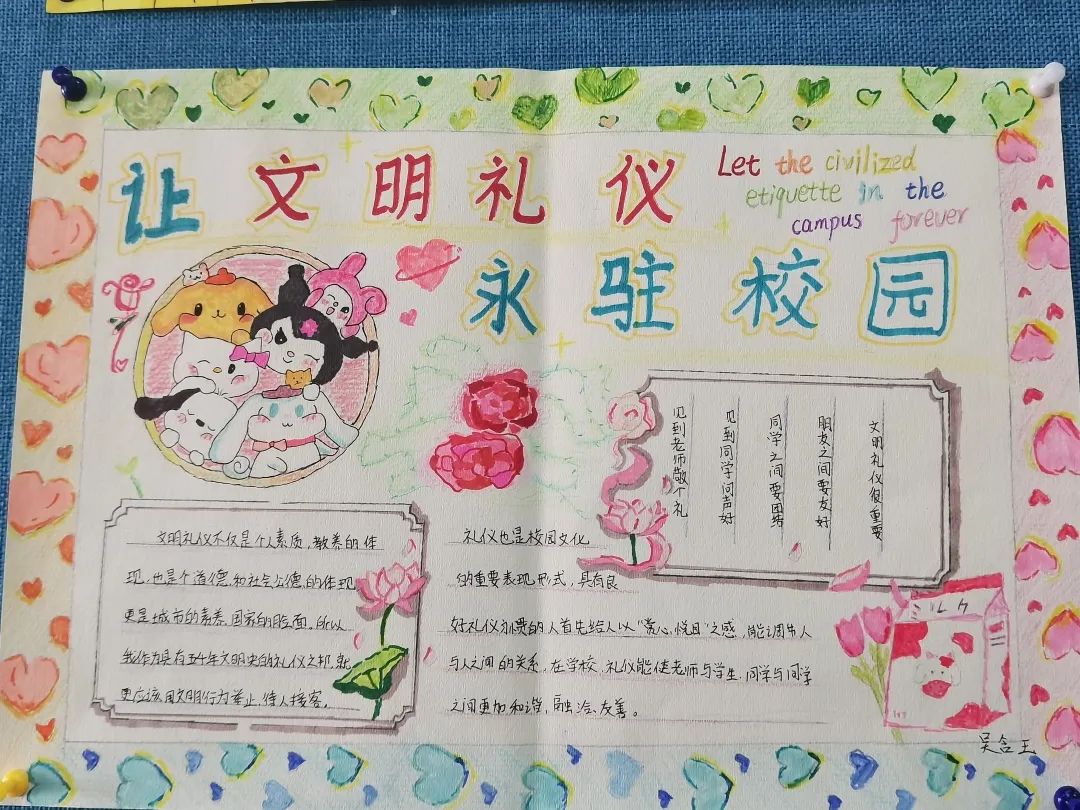 让文明礼仪
Let the civilized
etiquette in the
campus forever
永驻校园
文明礼仪很重要
朋友之间要友好
同学之间要团结
见到同学问声好
见到老师敬个礼
文明礼仪不仅是个人素质、教养的体
现,也是个道德和社会公德的体现
更是城市的素养、国家的脸面。所以
我作为具有五千年文明史的礼仪之邦,就
更应该用文明行为举止,待人接客。
礼仪也是校园文化
的重要表现形式,具有良
好礼仪习惯的人首先给人以"赏心悦目"之感,能调节人
与人之间的关系,在学校,礼仪能使老师与学生,同学与同学
之间更加和谐,融洽、友善。
MILK
吴含玉